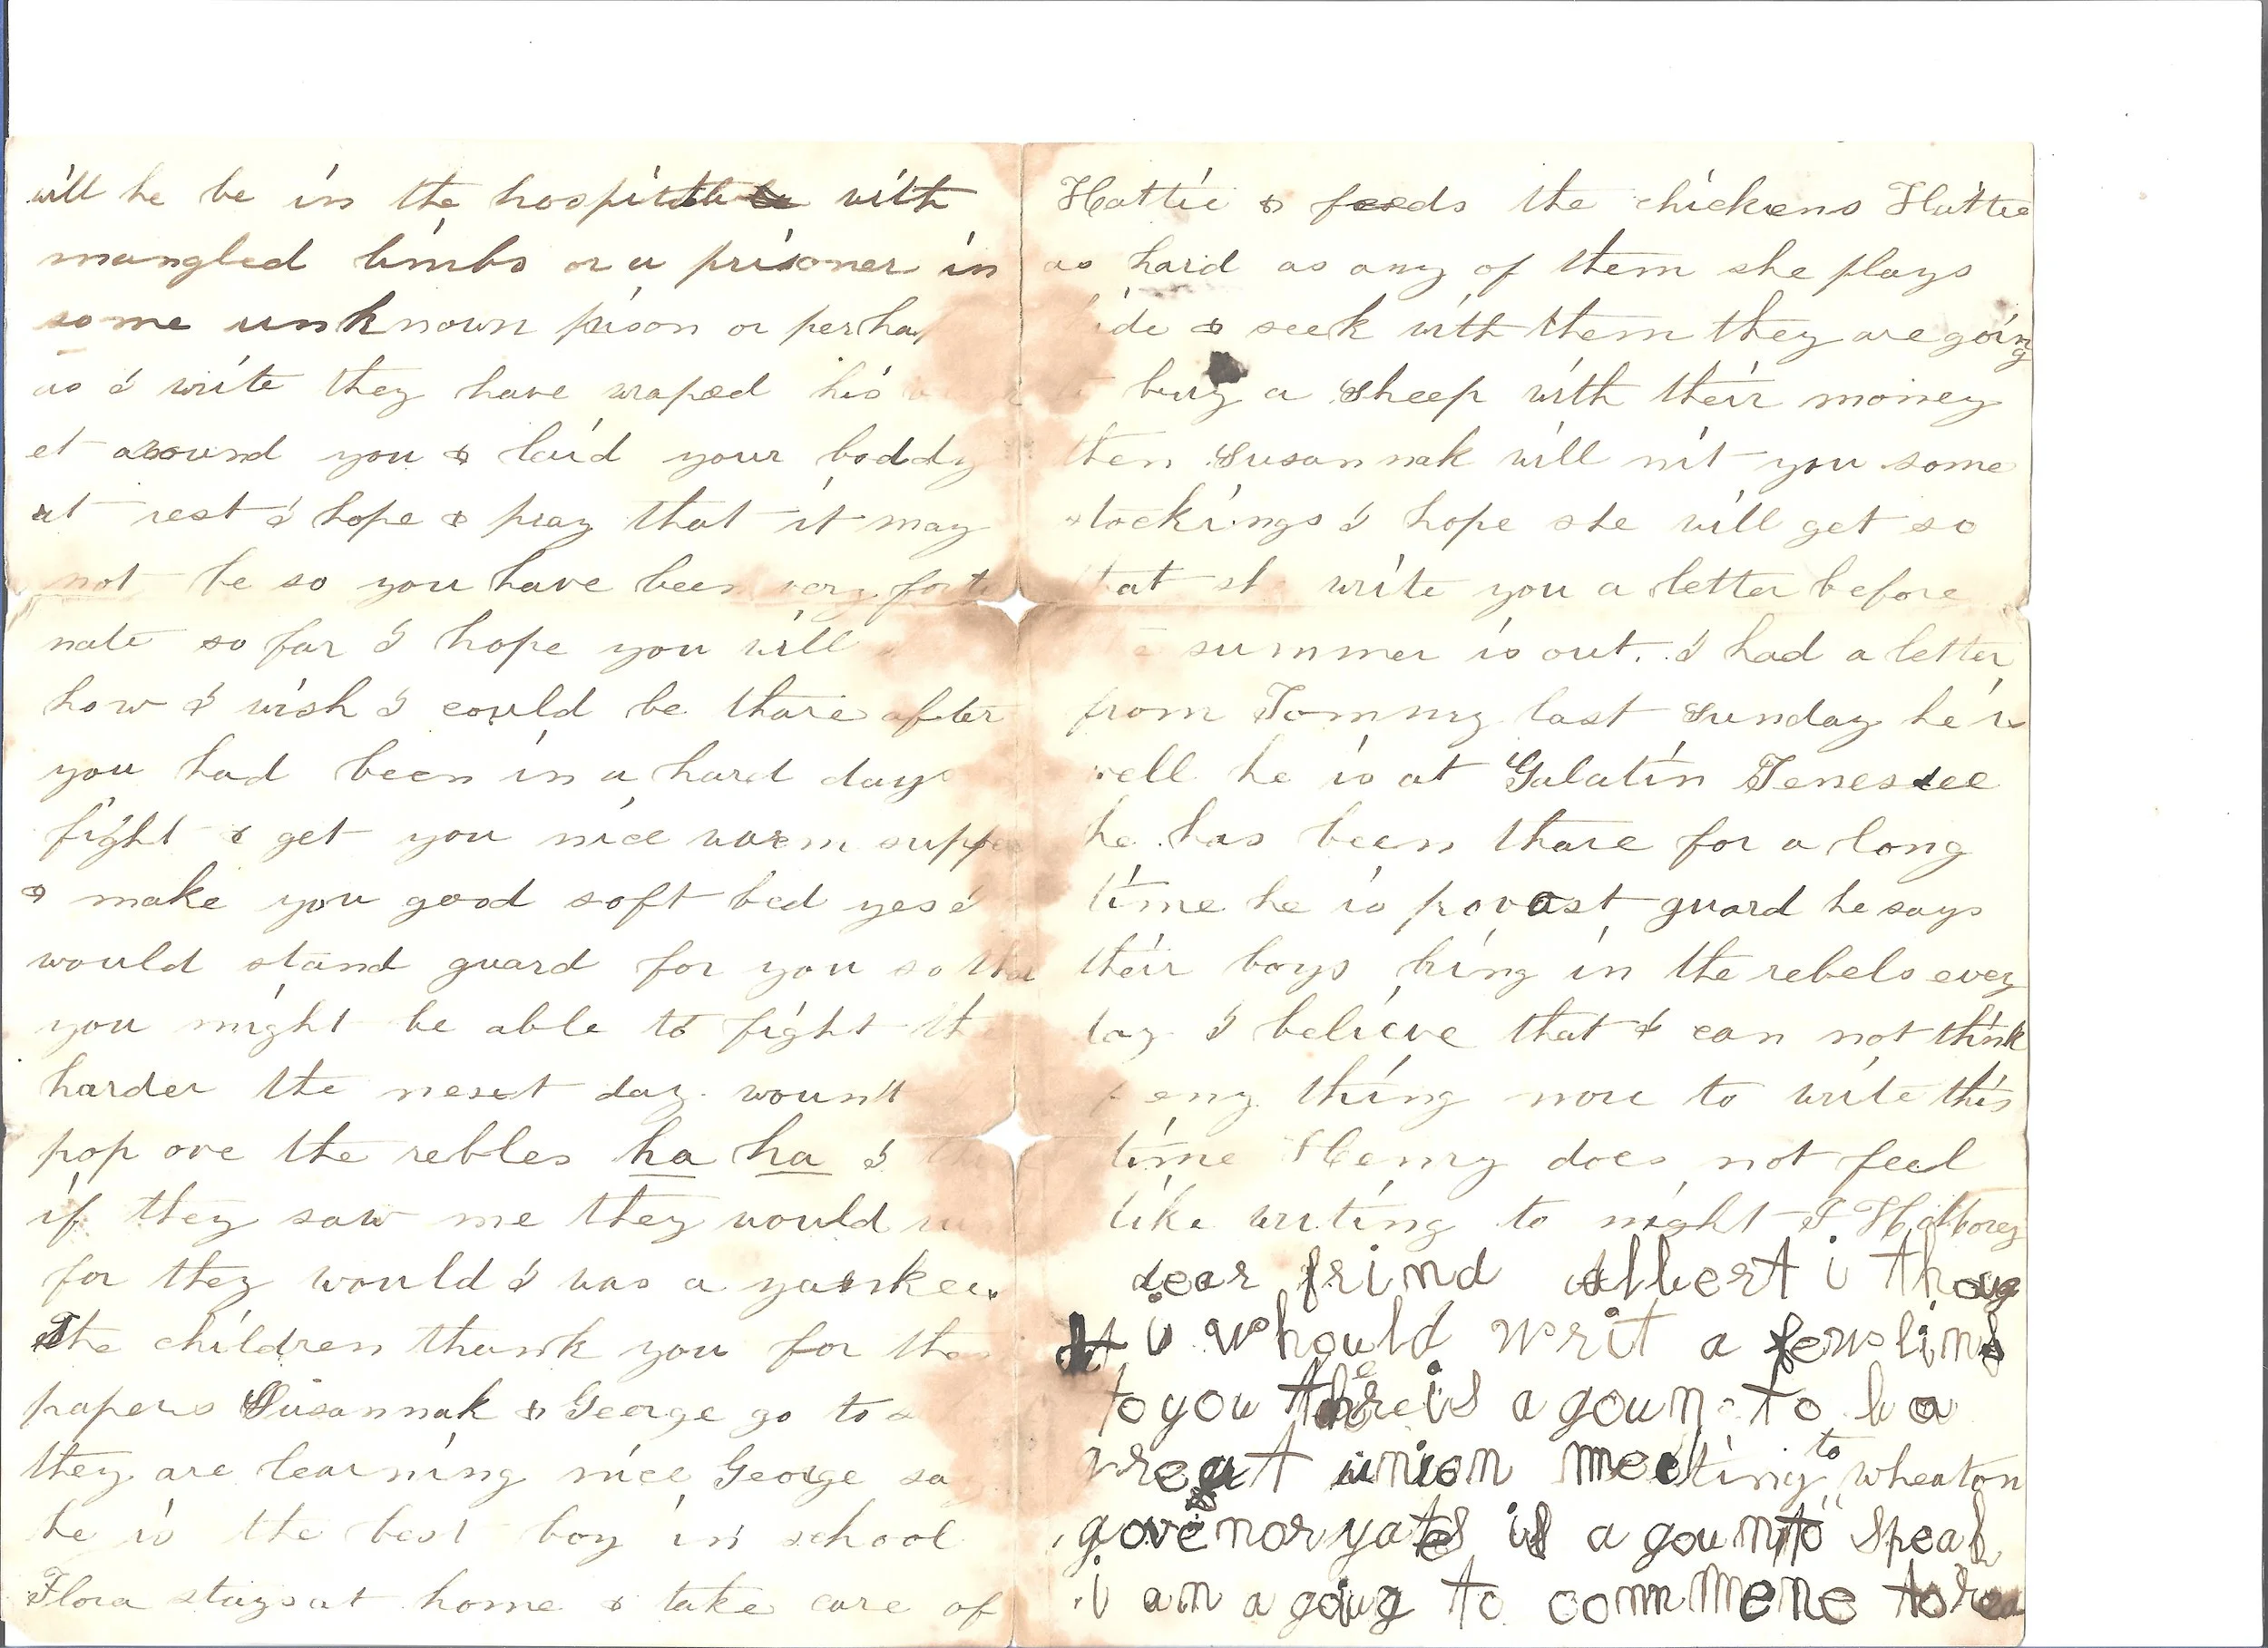 will he be in the hospital with
mangled limbs or a prisoner in
some unknown prison or perhap
as I write they have wraped his
et around you & laid your boddy
at rest I hope & pray that it may
not be so you have been very fortu
nate so far I hope you will
how I wish I could be thare after
you had been in a hard days
fight & get you nice warm supper
& make you good soft bed yes I
would stand guard for you so that
you might be able to fight the
harder the nexst day wount
pop ove the rebles ha ha I
if they saw me they would
for they would I was a yankee
The children thank you for the
papers Susannah & George go to
they are learning nice George say
he is the best boy in school
Flora stays at home & take care of
Hattie & feeds the chickens Hattie
as hard as any of them she plays
ide & seek with them they are going
buy a sheep with their money
then Susannah will nit you some
stockings I hope she will get so
that sh write you a letter before
summer is out. I had a letter
from Tommy last Sunday he is
well he is at Galatin Tenessee
he has been thare for a long
time he is provost guard he says
their boys bring in the rebels every
day I believe that I can not think
eny thing more to write this
time Henry does not feel
like writing to night
dear frind Albert i thoug
ht i whould writ a few lins
to you there is a goun to b a
great union meeting to wheaton
govenor yates is a goun to speak
i am a going to commenc to rea